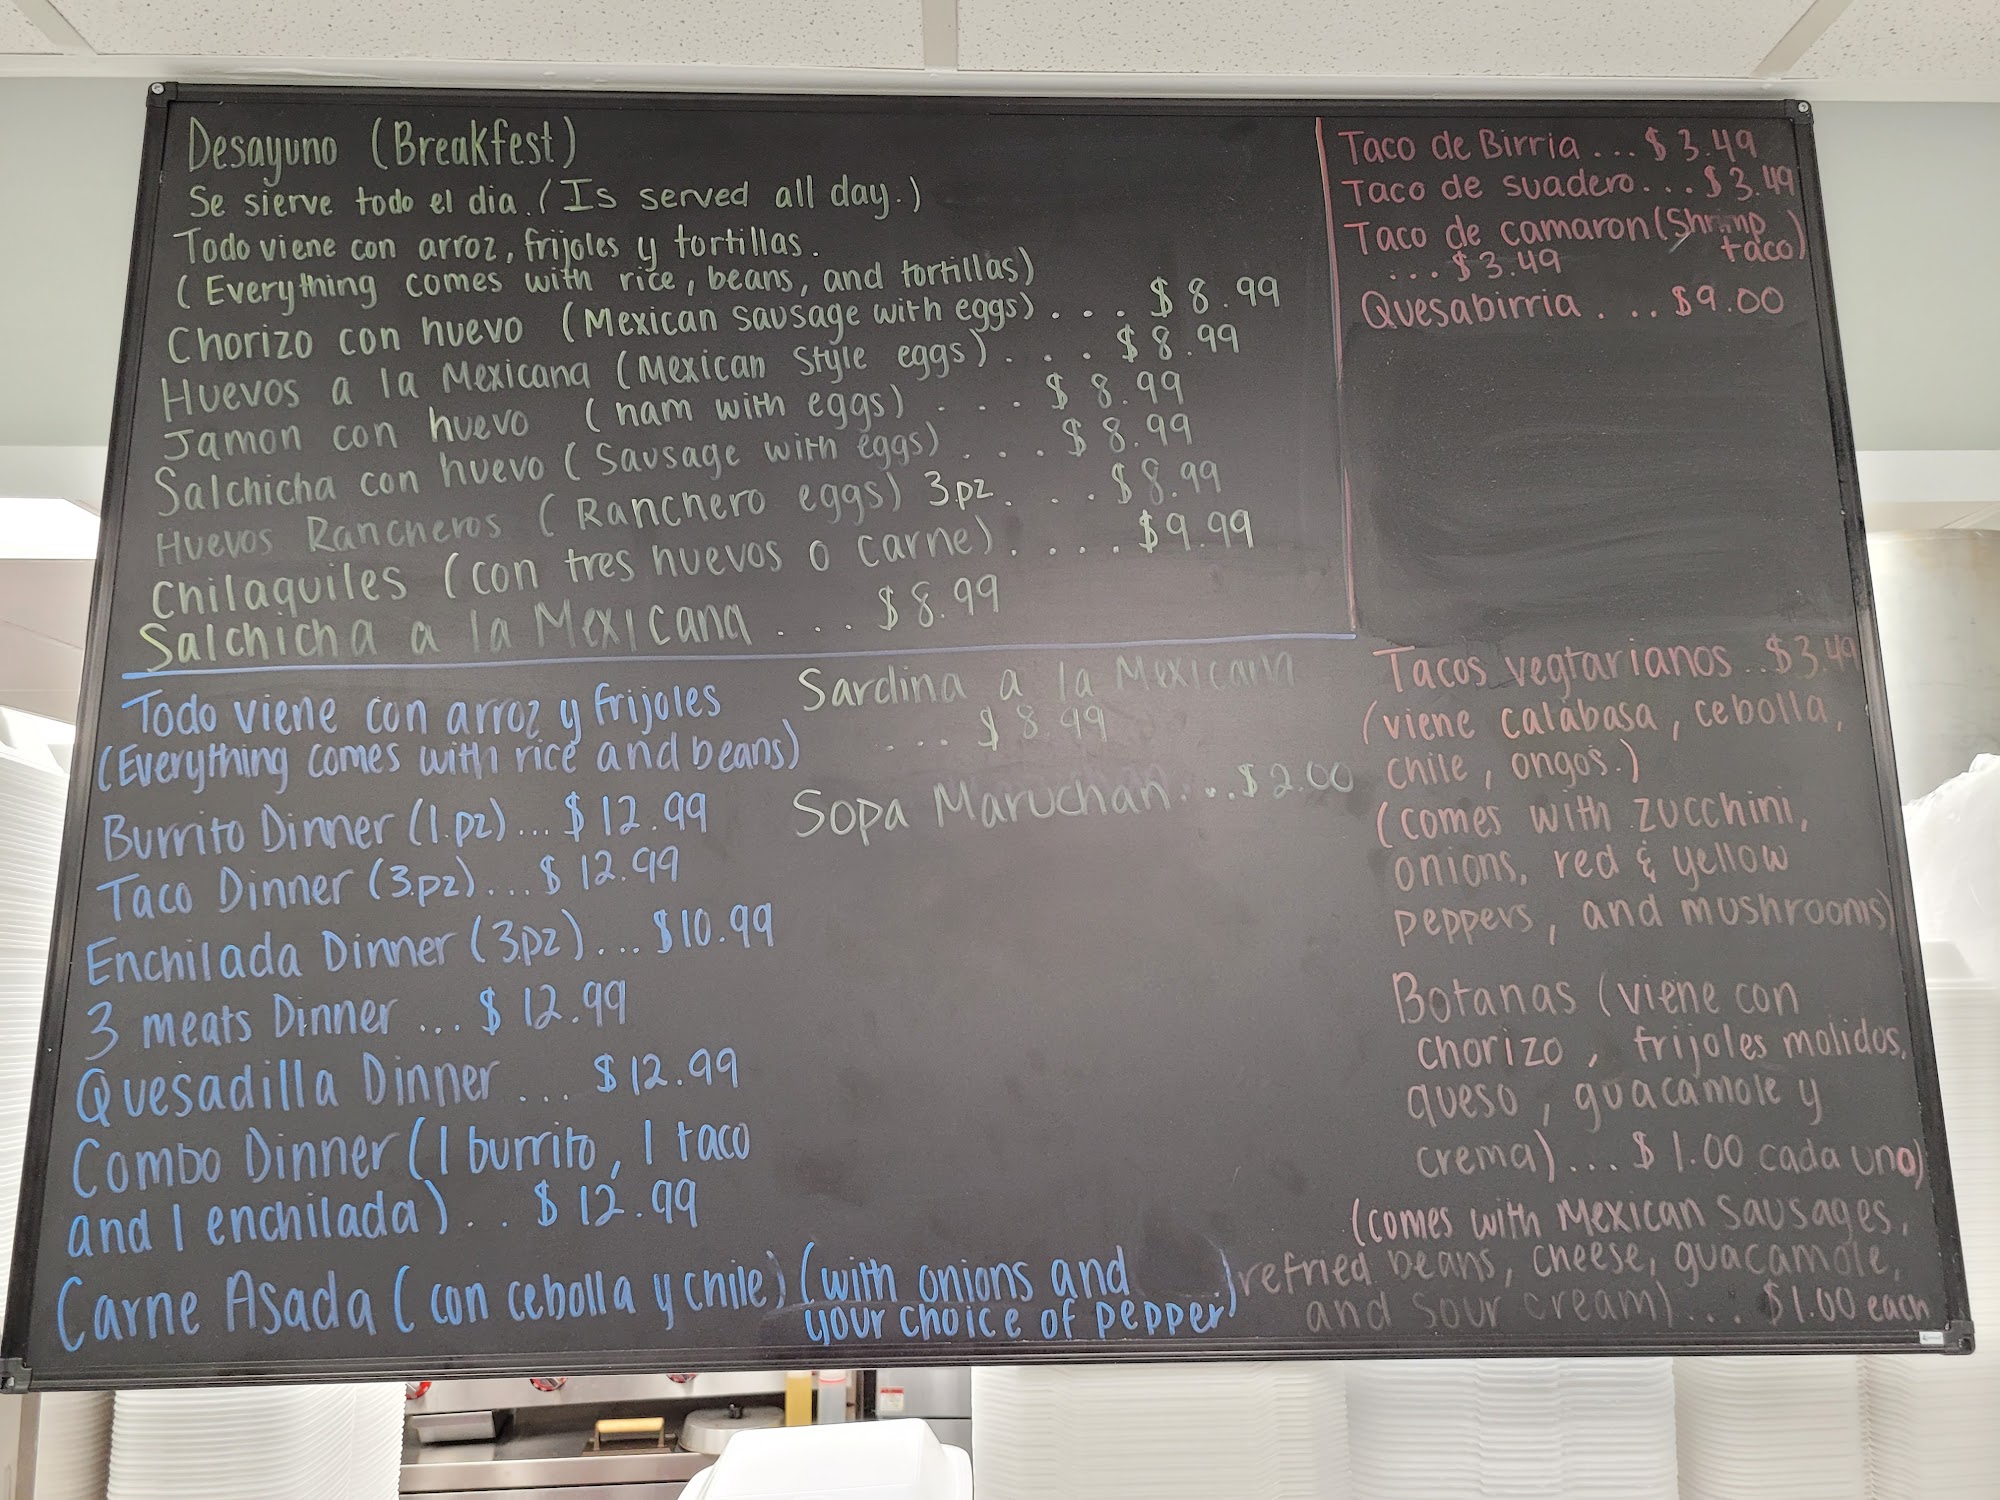 Desayuno (Breakfest)
Se sierve todo el dia. (Is served all day.)
Todo viene con arroz, frijoles y tortillas.
(Everything comes with rice, beans, and tortillas)
Chorizo con huevo (Mexican sausage with eggs) . . . $ 8.99
Huevos a la Mexicana (Mexican Style eggs) . . . $ 8.99
Jamon con huevo (ham with eggs) . . . $ 8.99
Salchicha con huevo (Sausage with eggs) . . . $ 8.99
Huevos Rancheros (Ranchero eggs) 3.pz . . . $8.99
Chilaquiles (con tres huevos o carne) . . . . $9.99
Salchicha a la Mexicana . . . $ 8.99
Sardina a la Mexicana
. . . $ 8.99
Sopa Maruchan . . . $2.00
Todo viene con arroz y frijoles
(Everything comes with rice and beans)
Burrito Dinner (1.pz) ... $ 12.99
Taco Dinner (3.pz) ... $ 12.99
Enchilada Dinner (3.pz) ... $10.99
3 meats Dinner ... $ 12.99
Quesadilla Dinner ... $12.99
Combo Dinner (1 burrito, 1 taco
and 1 enchilada) . . . $ 12.99
Carne Asada (con cebolla y chile) (with onions and
your choice of pepper)
Taco de Birria ... $ 3.49
Taco de suadero ... $ 3.49
Taco de camaron (Shrimp
taco)
... $3.49
Quesabirria . . . $9.00
Tacos vegtarianos .. $3.49
(viene calabasa, cebolla,
chile, ongos.)
(comes with zucchini,
onions, red & yellow
peppers, and mushrooms)
Botanas (viene con
chorizo, frijoles molidos,
queso, guacamole y
crema) ... $ 1.00 cada uno)
(comes with Mexican Sausages,
refried beans, cheese, guacamole,
and sour cream) ... $1.00 each